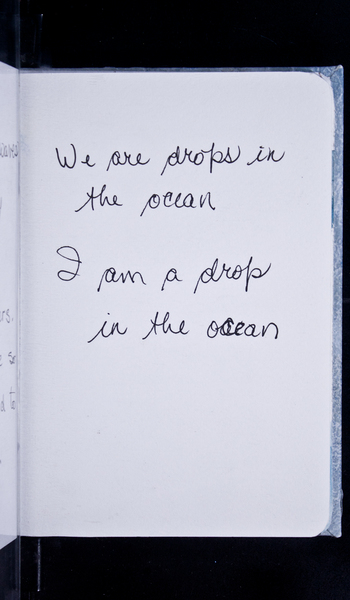 We are drops in
the ocean
I am a drop
in the ocean